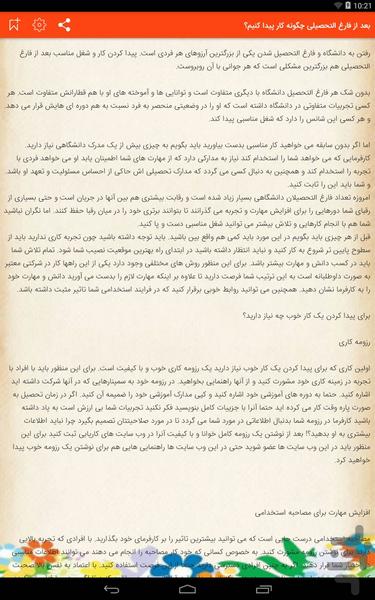 10:21
بعد از فارغ التحصیلی چگونه کار پیدا کنیم؟
رفتن به دانشگاه و فارغ التحصیل شدن یکی از بزرگترین آرزوهای هر فردی است. پیدا کردن کار و شغل مناسب بعد از فارغ
التحصیلی هم بزرگترین مشکلی است که هر جوانی با آن روبروست.
بدون شک هر فارغ التحصیل دانشگاه با دیگری متفاوت است و توانایی ها و آموخته های او با هم قطارانش متفاوت است. هر
کسی تجربیات متفاوتی در دانشگاه داشته است که او را در وضعیتی منحصر به فرد نسبت به هم دوره ای هایش قرار می دهد
و هر کسی این شانس را دارد که شغل مناسبی پیدا کند.
اما اگر بدون سابقه می خواهید کار مناسبی بدست بیاورید باید بگویم به چیزی بیش از یک مدرک دانشگاهی نیاز دارید.
کارفرمایی که می خواهد شما را استخدام کند نیاز به مدارکی دارد که از مهارت های شما اطمینان یابد او می خواهد فردی با
تجربه را استخدام کند و همچنین به دنبال کسی می گردد که مدارک تحصیلی اش حاکی از احساس مسئولیت و تعهد او باشد.
و شما باید این را ثابت کنید.
امروزه تعداد فارغ التحصیلان دانشگاهی بسیار زیاد شده است و رقابت بیشتری هم بین آنها در جریان است و حتی بسیاری از
رقبای شما دورهایی را برای افزایش مهارت و تجربه می گذرانند تا بتوانند برتری خود را در میان رقبا حفظ کنند. اما نگران نباشید
شما هم با انجام کارهایی و تلاش بیشتر می توانید شغل مناسبی دست و پا کنید.
قبل از هر چیزی باید بگویم در این مورد باید کمی هم واقع بین باشید. باید توجه داشته باشید چون تجربه کاری ندارید باید از
سطوح پایین تر شروع به کار کنید و نباید انتظار داشته باشید در ابتدای راه بهترین موقعیت نصیب شما شود. تمام تلاش شما
باید در کسب دانش و مهارت بیشتر باشد. برای این منظور روش های مختلفی وجود دارد یکی از این راهها کار در شرکتی معتبر
به صورت داوطلبانه است به این ترتیب شما فرصت دارید تا علاوه بر اینکه مهارت لازم را بدست می آورید دانش و مهارت خود
را به کارفرما نشان دهید. همچنین می توانید روابط خوبی برقرار کنید که در فرایند استخدامی شما تاثیر مثبت داشته باشد.
برای پیدا کردن یک کار خوب چه نیاز دارید؟
رزومه کاری
اولین کاری که برای پیدا کردن یک کار خوب نیاز دارید یک رزومه کاری خوب و با کیفیت است. برای این منظور باید با افراد با
تجربه در زمینه کاری خود مشورت کنید و از آنها راهنمایی بخواهید. در رزومه خود به سمینارهایی که در آنها شرکت داشته اید
اشاره کنید. حتما به دوره های آموزشی خود اشاره کنید و کپی مدارک آموزشی خود را ضمیمه آن کنید. اگر در زمان تحصیل به
صورت پاره وقت کار می کرده اید حتما آنرا با جزییات کامل بنویسید فکر نکنید تجربیات شما بی ارزش است به یاد داشته
باشید کارفرما در رزومه شما بدنبال اطلاعاتی در مورد شما می گردد تا در مورد صلاحیتتان تصمیم بگیرد چرا نباید اطلاعات
بیشتری به او بدهید؟! بعد از نوشتن یک رزومه کامل خوانا و با کیفیت آنرا در وب سایت های کاریابی ثبت کنید برای این
منظور باید در این وب سایت ها عضو شوید حتی در این وب سایت ها راهنمایی هایی هم برای نوشتن یک رزومه خوب پیدا
خواهید کرد.
افزایش مهارت برای مصاحبه استخدامی
مصاحبه استخدامی درست جایی است که می توانید بیشترین تاثیر را بر کارفرمای خود بگذارید. با افرادی که تجربه بالایی